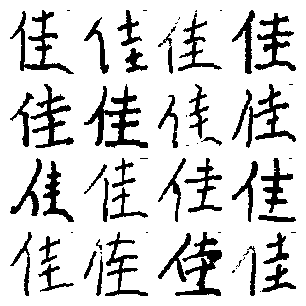 佳佳佳佳
佳佳佳佳
佳佳佳佳
佳佳佳佳